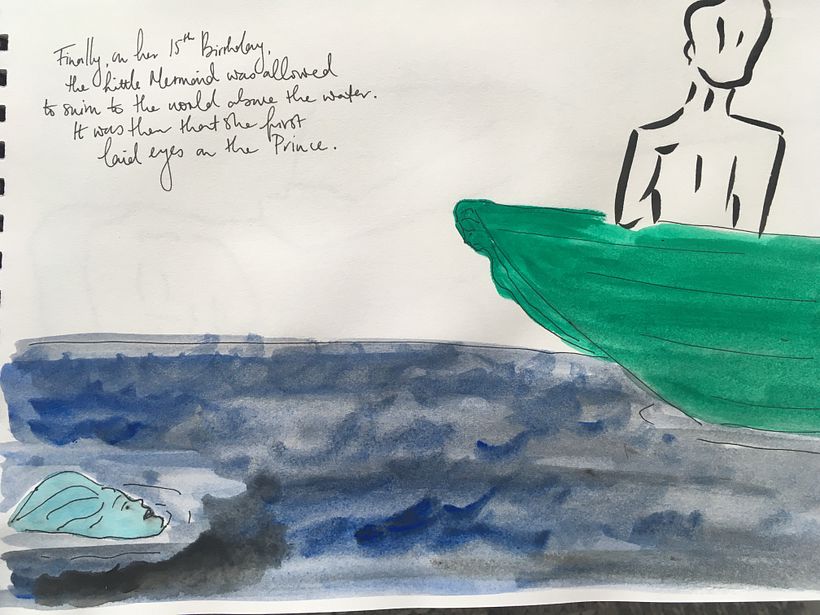 Finally, on her 15th Birthday,
the Little Mermaid was allowed
to swim to the world above the water.
It was then that she first
laid eyes on the Prince.